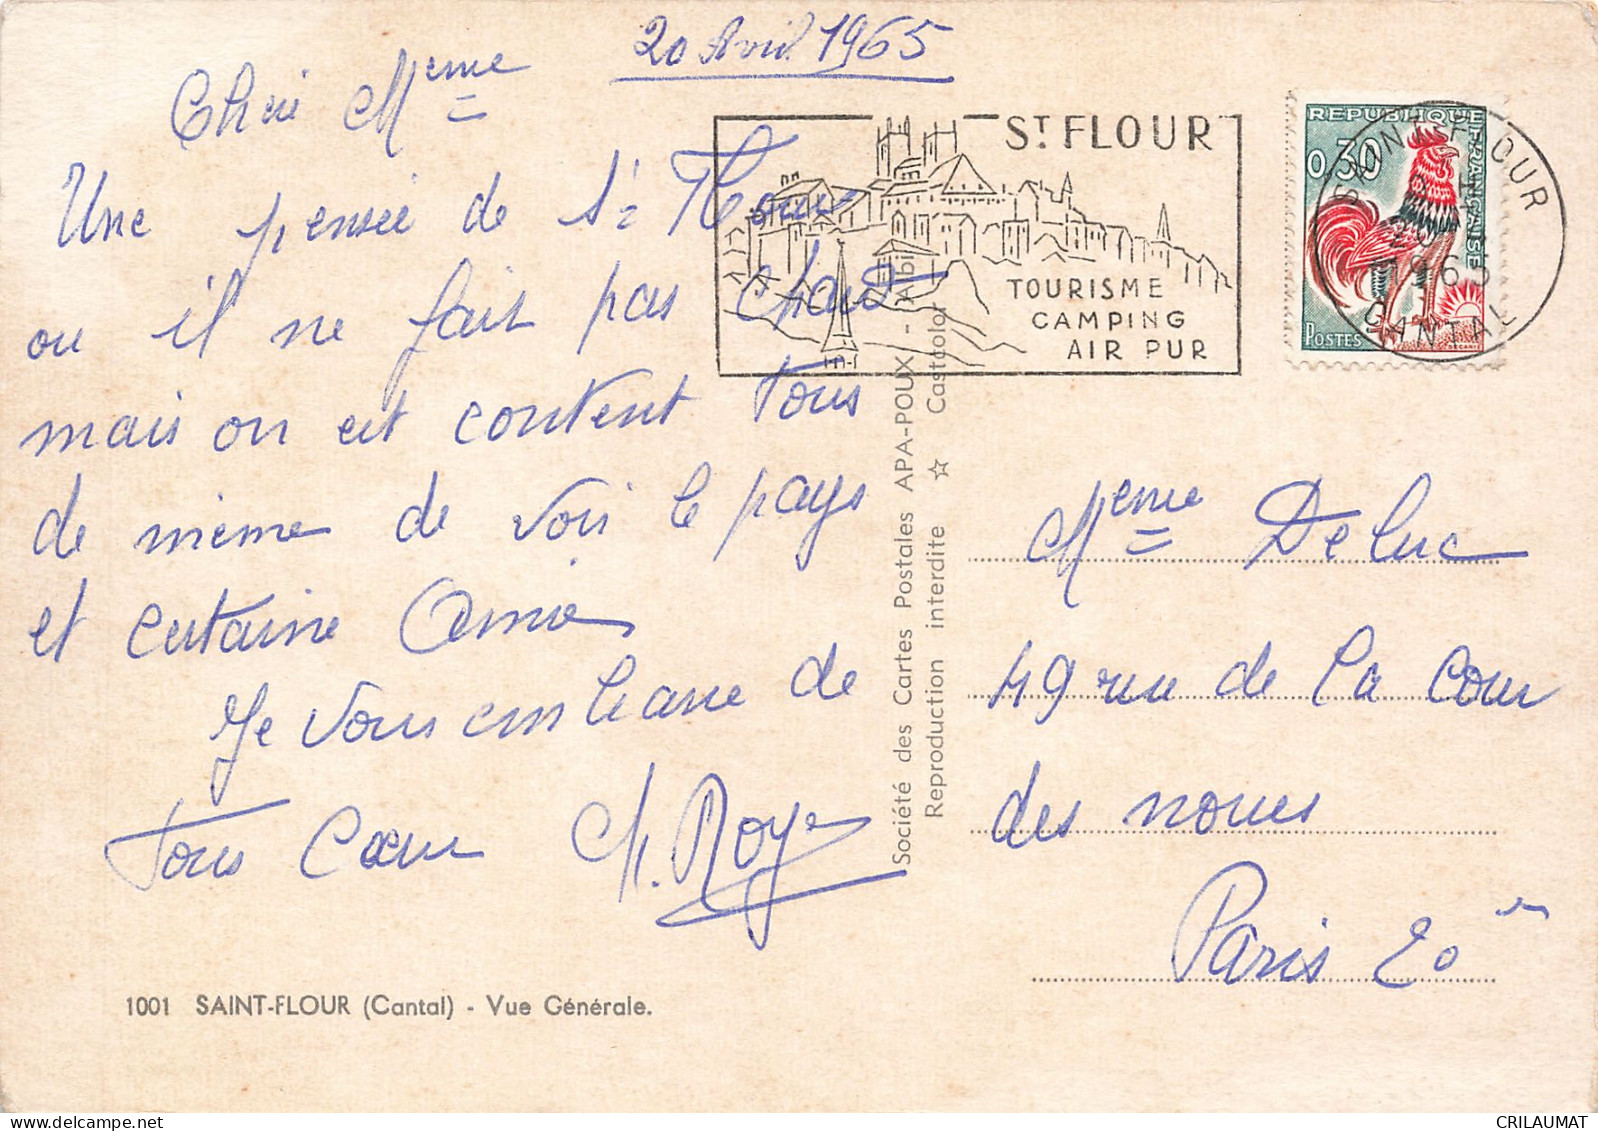 20 Avril 1965
Chère Meme
Une pensée de St Flour
ou il ne fait pas chaud
mais on est content tous
de même de voir le pays
et certaine Amie
Je vous embrasse de
tous Cœur M. Roye
1001 SAINT-FLOUR (Cantal) - Vue Générale.
Société des Cartes Postales APA-POUX - Albi
Reproduction interdite ☆ Castcolor
ST FLOUR
TOURISME
CAMPING
AIR PUR
REPUBLIQUE FRANÇAISE
0,30
POSTES
DECARIS
SAINT-FLOUR
20
1965
CANTAL
Meme Deluc
49 rue de la Cour
des noues
Paris 20e
CRILAUMAT